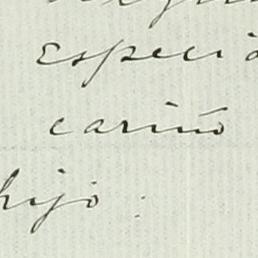 especia
cariño
hijo.